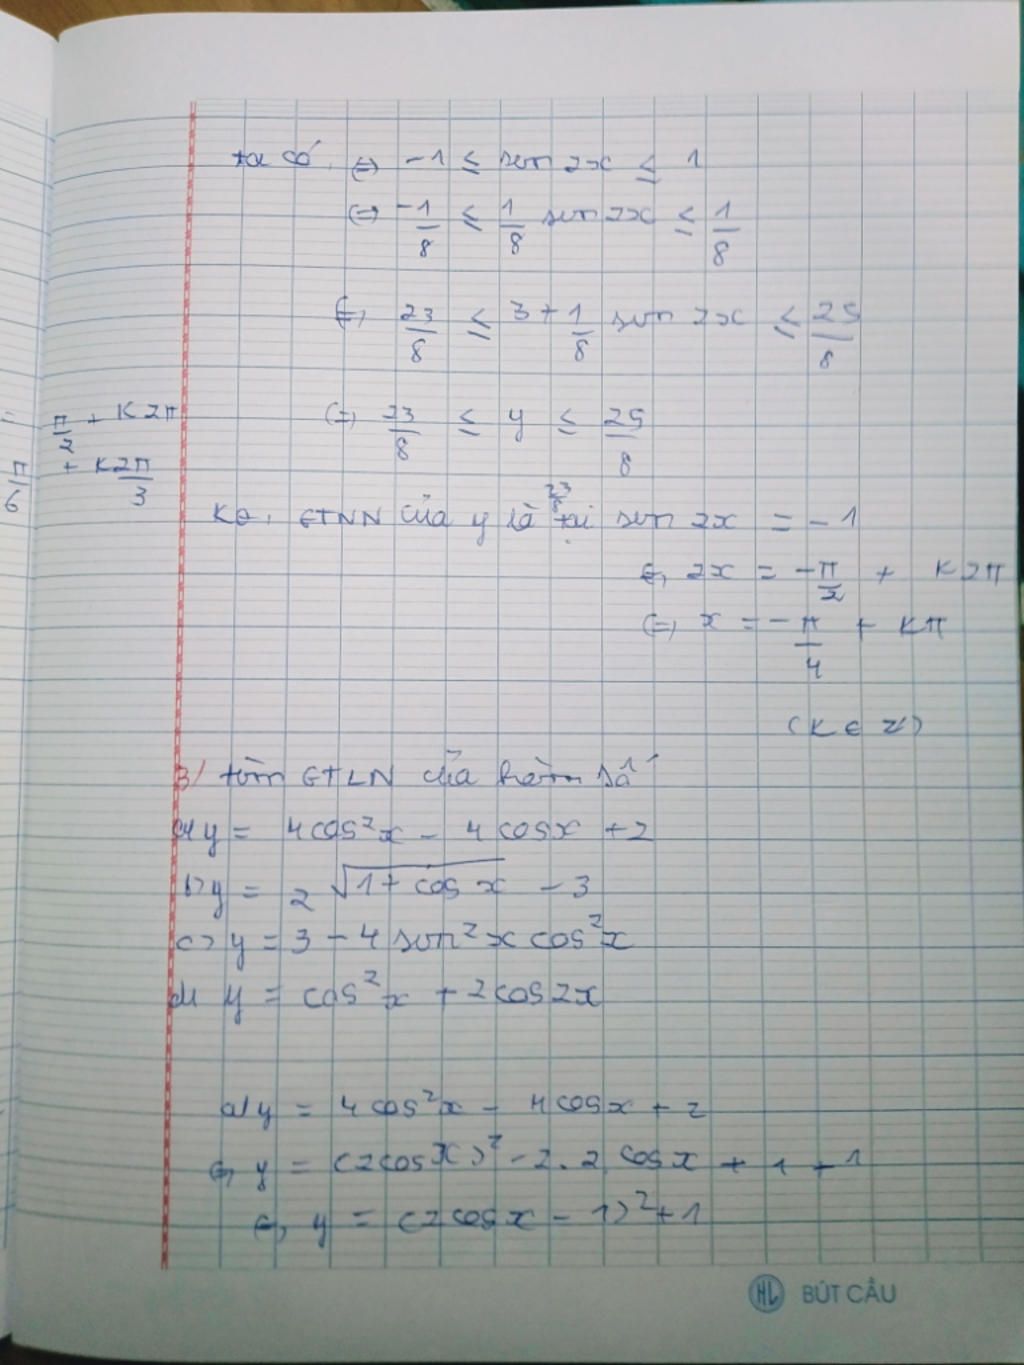 ta có ⇔ -1 ≤ sin 2x ≤ 1
⇔ -1/8 ≤ 1/8 sin 2x ≤ 1/8
⇔ 23/8 ≤ 3 + 1/8 sin 2x ≤ 25/8
⇔ 23/8 ≤ y ≤ 25/8
= π/2 + K2π
π/6 + K2π/3
KL, GTNN của y là 23/8 tại sin 2x = -1
⇔ 2x = -π/2 + K2π
⇔ x = -π/4 + Kπ
(K ∈ Z)
3/ tìm GTLN của hàm số
a/ y = 4cos²x - 4cosx + 2
b> y = 2√(1 + cos x) - 3
c> y = 3 - 4 sin²x cos²x
d/ y = cos²x + 2cos2x
a/ y = 4cos²x - 4cosx + 2
⇔ y = (2cosx)² - 2.2 cosx + 1 + 1
⇔ y = (2cosx - 1)² + 1
HL BÚT CẦU